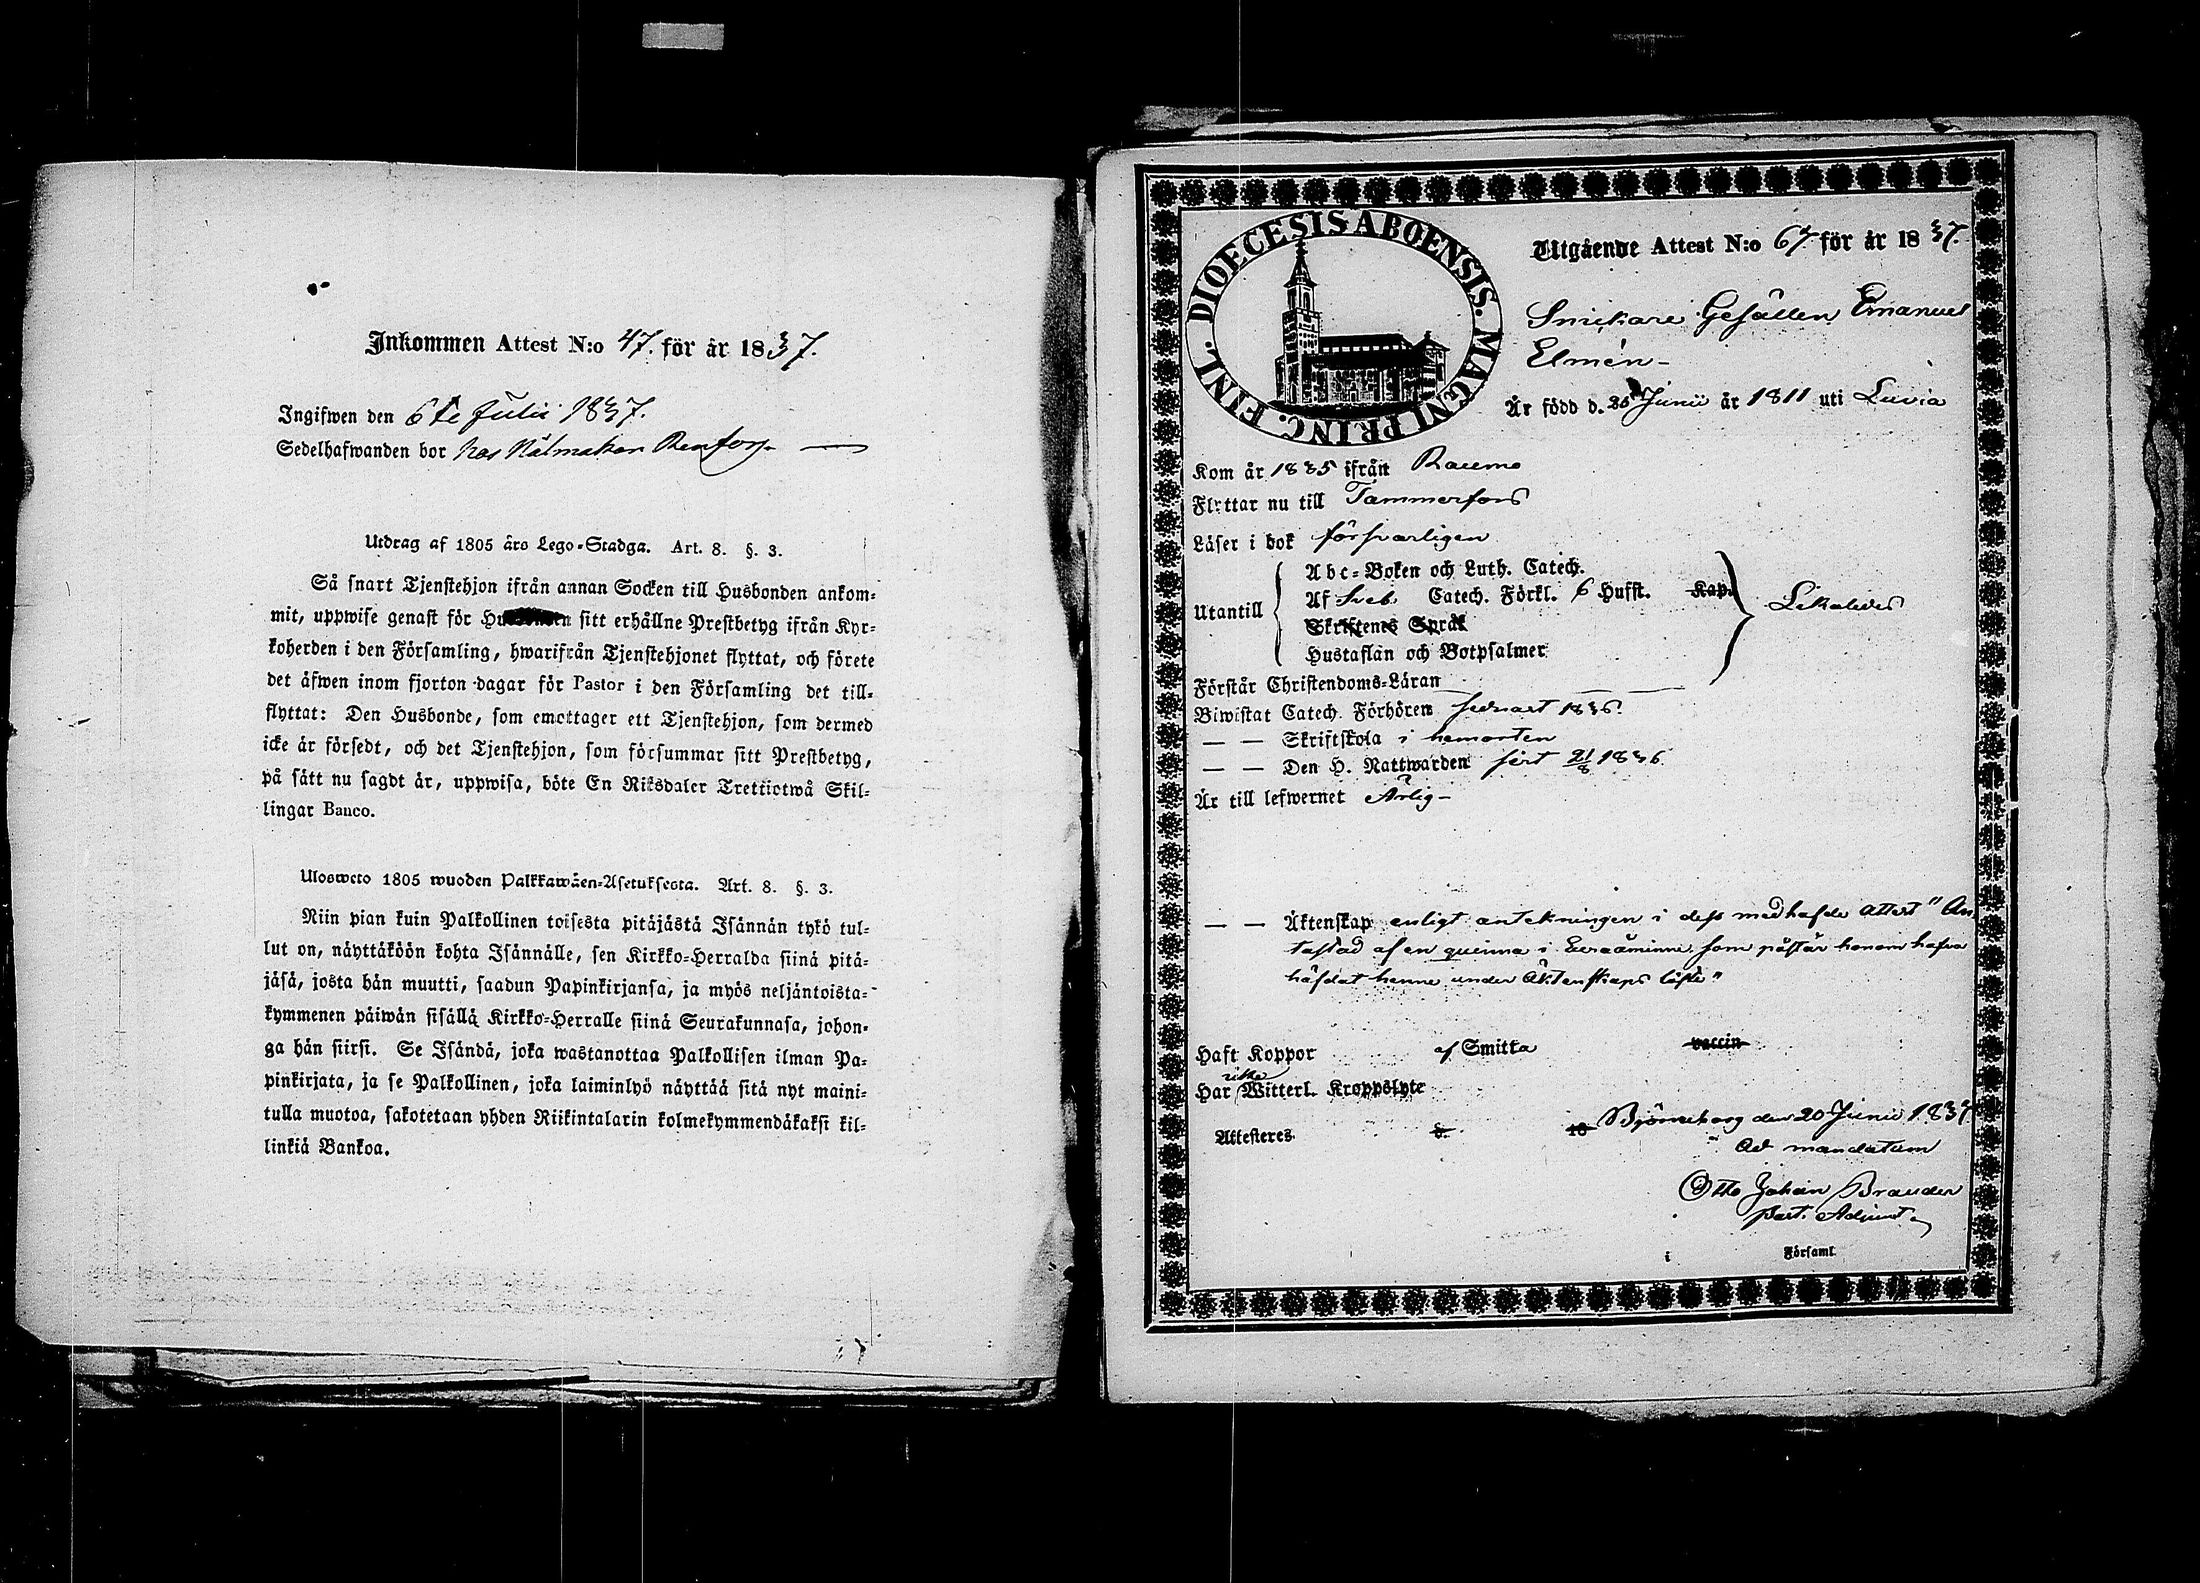 Inkommen Attest N:o 47. för år 1837.
Ingifwen den 6te Julii 1837.
Sedelhafwanden bor hos Nålmakar Renfors. —
Utdrag af 1805 års Lego-Stadga. Art. 8. §. 3.
Så snart Tjenstehjon ifrån annan Socken till Husbonden ankom-
mit, uppwise genast för sitt erhållne Prestbetyg ifrån Kyr-
koherden i den Församling, hwarifrån Tjenstehjonet flyttat, och förete
det äfwen inom fjorton dagar för Pastor i den Församling det till-
flyttat: Den Husbonde, som emottager ett Tjenstehjon, som dermed
icke är försedt, och det Tjenstehjon, som försummar sitt Prestbetyg,
på sätt nu sagdt är, uppwisa, böte En Riksdaler Trettiotwå Skil-
lingar Banco.
Ulosweto 1805 wuoden Palkkawäen-Asetuksesta. Art. 8. §. 3.
Niin pian kuin Palkollinen toisesta pitäjästä Isännän tykö tul-
lut on, näyttäköön kohta Isännälle, sen Kirkko-Herralda siinä pitä-
jäsä, josta hän muutti, saadun Papinkirjansa, ja myös neljäntoista-
kymmenen päiwän sisällä Kirkko-Herralle siinä Seurakunnasa, johon-
ga hän siirsi. Se Isändä, joka wastanottaa Palkollisen ilman Pa-
pinkirjata, ja se Palkollinen, joka laiminlyö näyttää sitä nyt maini-
tulla muotoa, sakotetaan yhden Riikintalarin kolmekymmendäkaksi kil-
linkiä Bankoa.
DIOECESIS ABOENSIS. MAGNI PRINC. FINL.
Utgående Attest N:o 67 för år 1837.
Snickare Gesällen Emanuel
Elmén –
Är född d. 20 Junii år 1811 uti Luvia
Kom år 1835 ifrån Raumo
Flyttar nu till Tammerfors
Läser i bok försvarligen
Abc-Boken och Luth. Catech.
Utantill Af Sveb. Catech. Förkl. 6 Hufst. Kap.
Skriftenes Språk
Hustaflan och Botpsalmer
Förstår Christendoms-Läran
Biwistat Catech. Förhören sednast 1836.
— — Skriftskola i hemorten
— — Den H. Nattwarden sist 21/8 1836
Är till lefwernet Ärlig –
— — Äktenskap enligt antekningen i dess medhafde Attest "An
tastad af en quinna i Euraåminne, som påstår honom hafva
häfdat henne under Äktenskaps löfte"
Haft Koppor af Smitta vaccin
icke
Har Witterl. Kroppslyte
Attesteras d. 18 Björneborg den 20 Junii 1837
Ad mandatum
Otto Johan Brander
Past. Adjunct
i Församl.